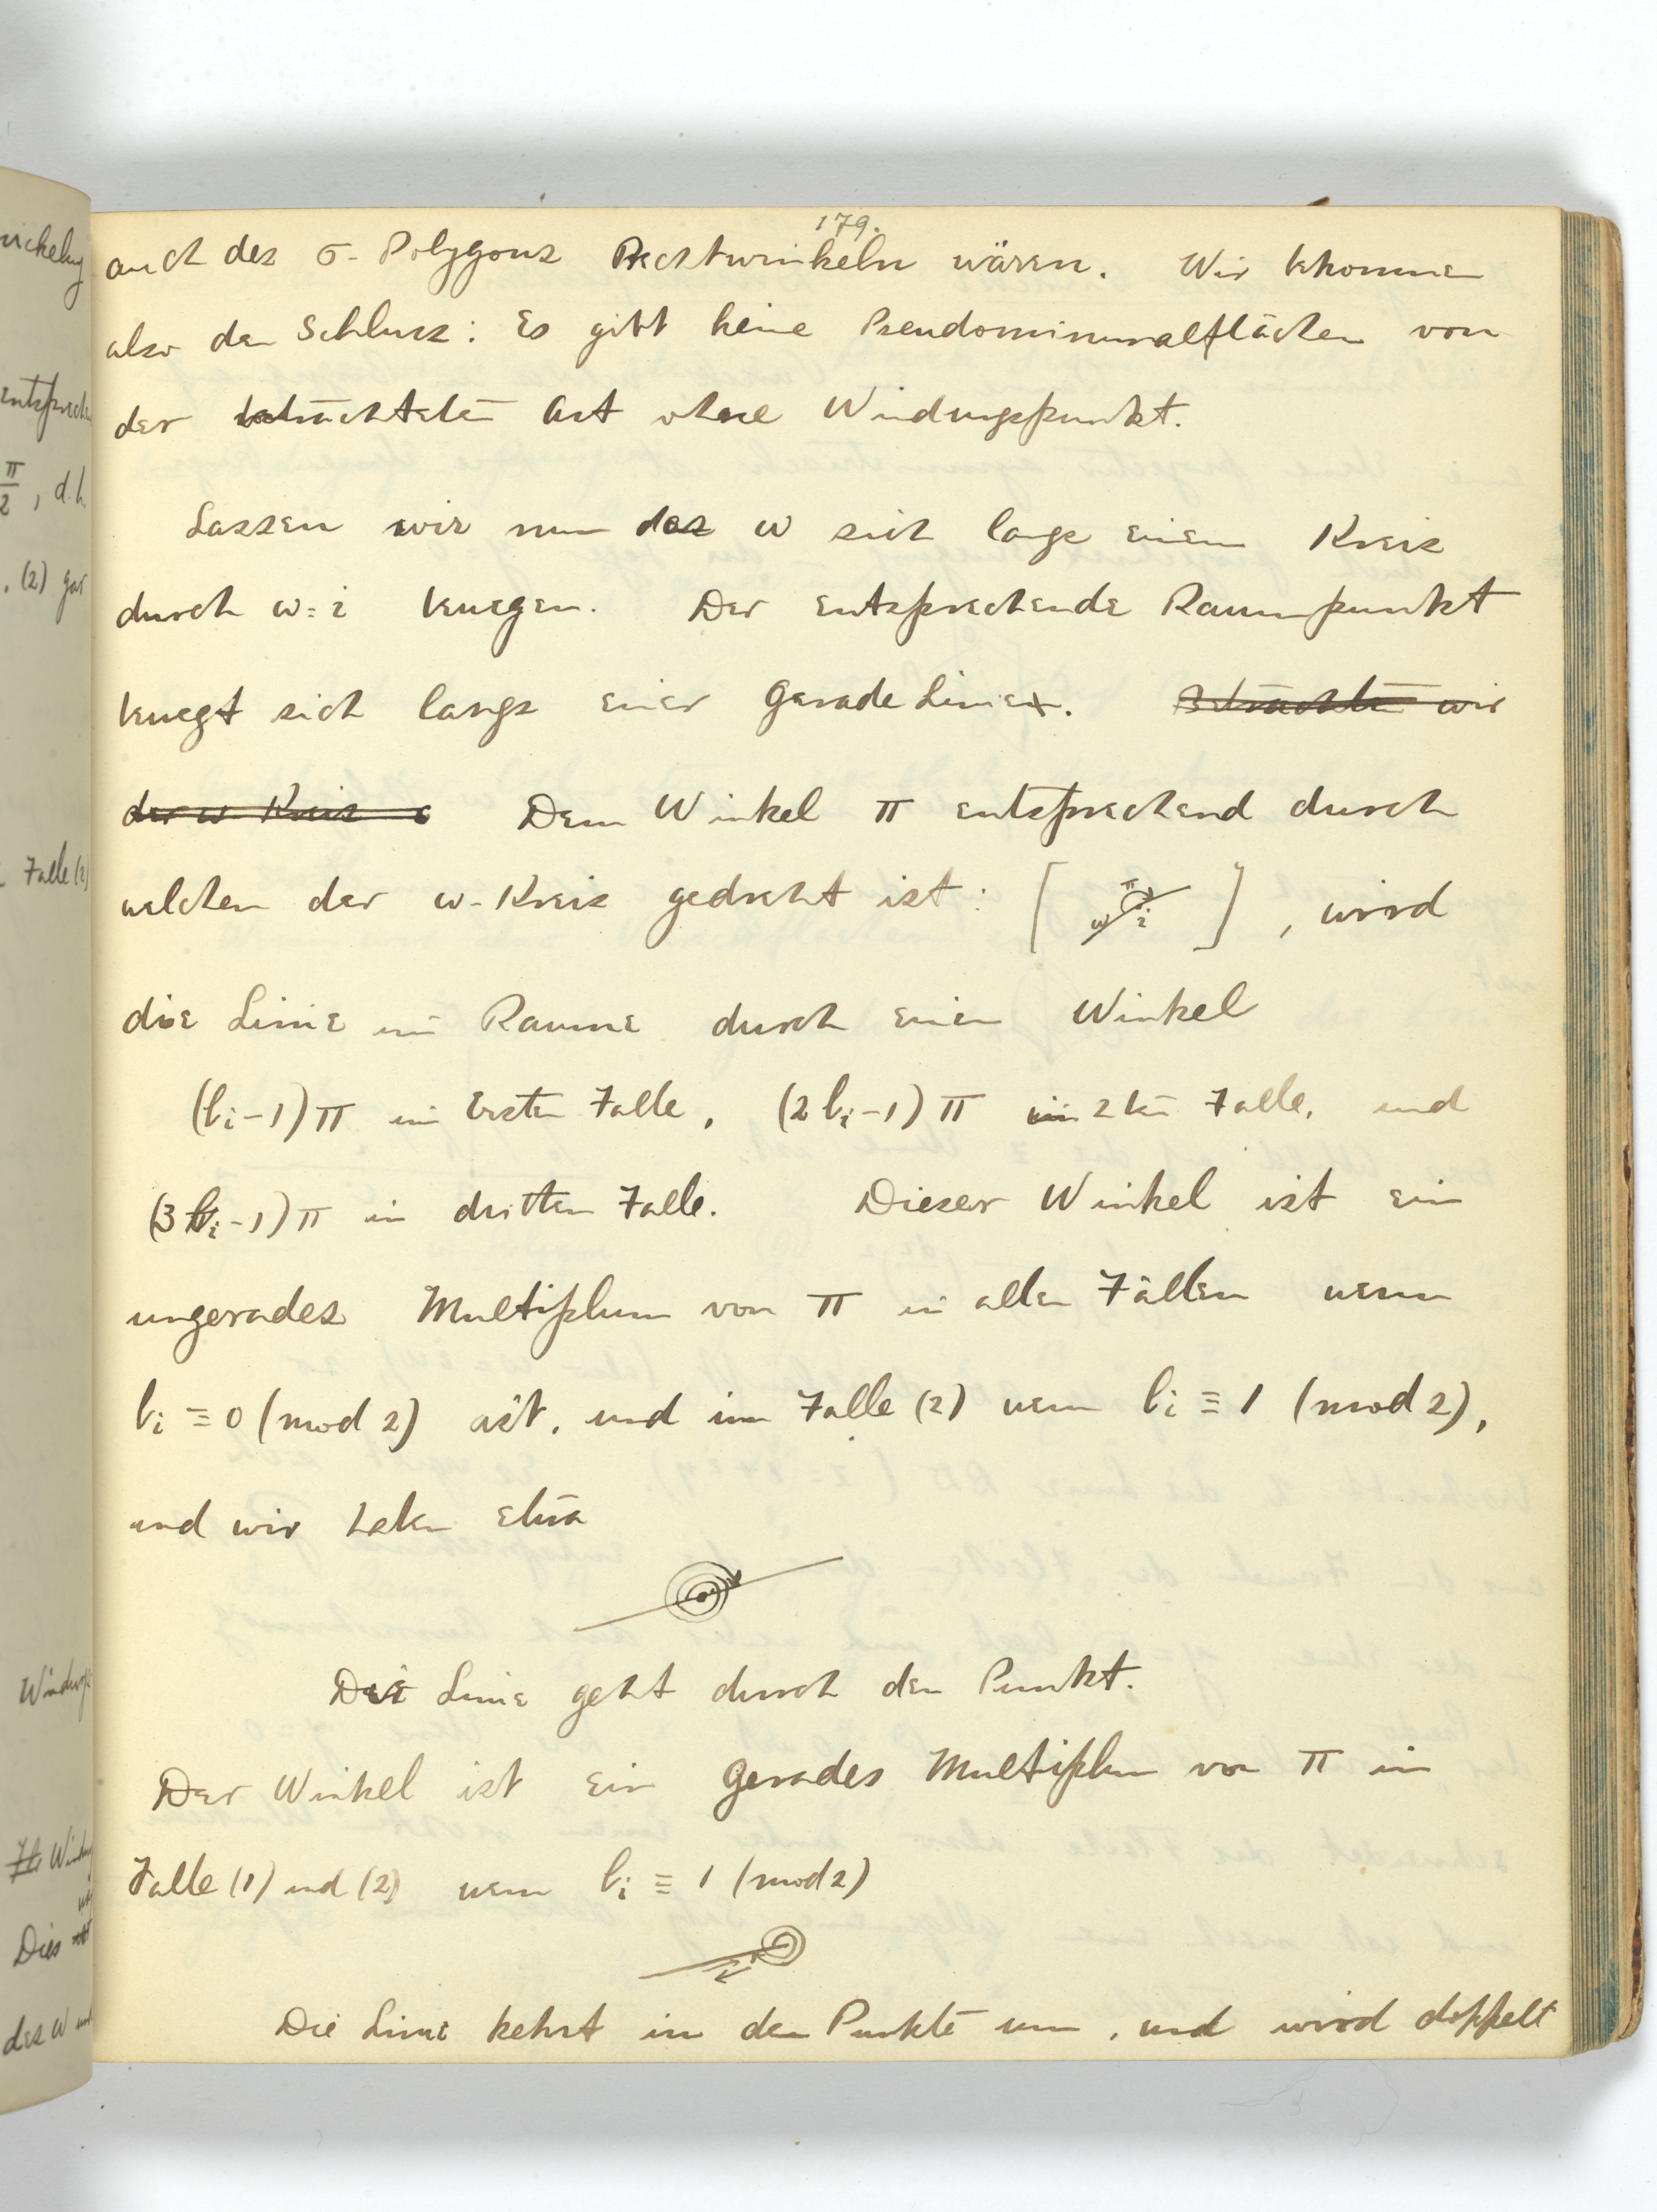 179.
auch des σ-Polygons Rechtwinkeln wären. Wir bekommen
also den Schluss: Es gibt keine Pseudominimalflächen von
der betrachteten Art ohne Windungspunkt.
Lassen wir nun das w sich langs einem Kreis
durch w=i bewegen. Der entsprechende Raumpunkt
bewegt sich langs einer gerade Linie. Betrachten wir
der w Kreis Dem Winkel π entsprechend durch
welchen der w-Kreis gedreht ist: [ w π i ], wird
die Linie im Raume durch einen Winkel
(bi-1)π im Ersten Falle, (2bi-1)π im 2ten Falle, und
(3bi-1)π in dritten Falle. Dieser Winkel ist ein
ungerades Multiplum von π in allen Fällen wenn
bi ≡ 0 (mod 2) ist, und im Falle (2) wenn bi ≡ 1 (mod 2),
und wir haben etwa
Die Linie geht durch den Punkt.
Der Winkel ist ein gerades Multiplum von π in
Falle (1) und (2) wenn bi ≡ 1 (mod 2)
Die Linie kehrt in den Punkte um, und wird doppelt
wickelung
entsprechen
π/2, d.h.
. (2) gar
Falle (2)
Dies
des W